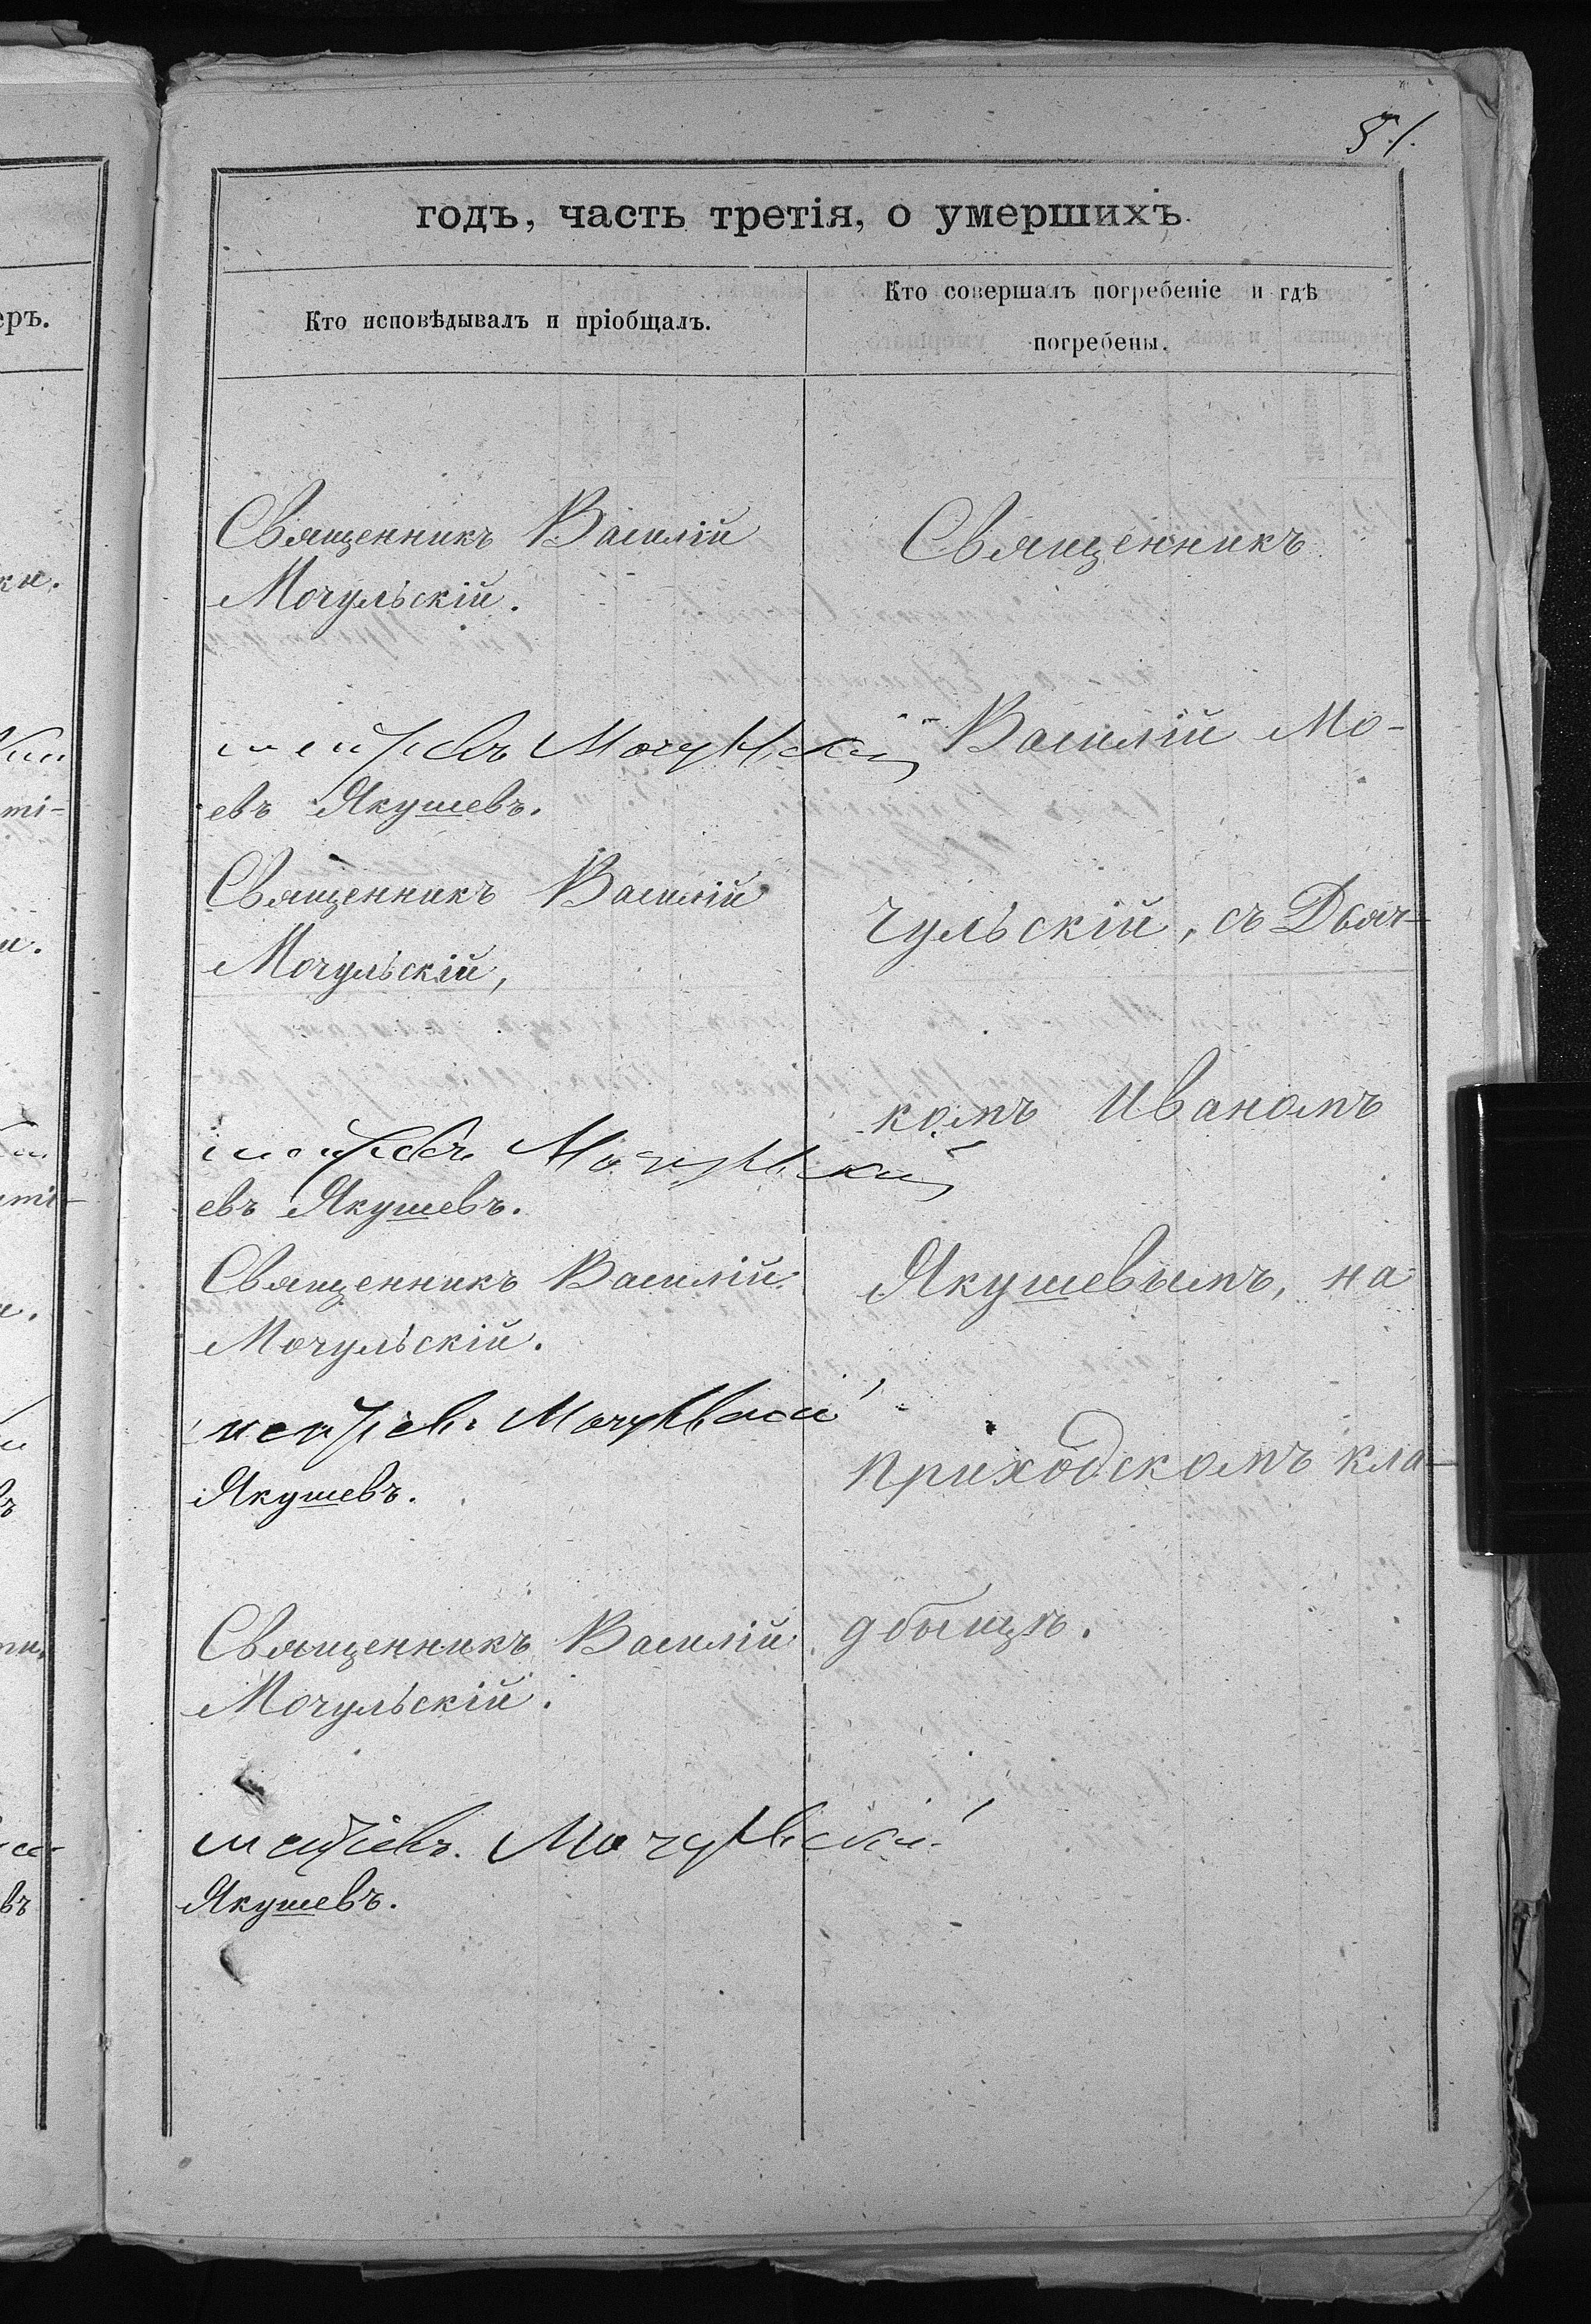 51.
годъ, часть третія, о умершихъ.
Кто исповѣдывалъ и пріобщалъ.
Кто совершалъ погребеніе и гдѣ
погребены.
Священникъ Василій
Мочульскій.
Мочульскій
евъ Якушевъ.
Священникъ Василій
Мочульскій,
Мочульскій
евъ Якушевъ.
Священникъ Василій
Мочульскій.
Мочульскій
Якушевъ.
Священникъ Василій
Мочульскій.
Мочульскій
Якушевъ.
Священникъ
Василій Мо-
чульскій, съ Дьяч-
комъ Иваномъ
Якушевымъ, на
приходскомъ кла-
дбищѣ.
еръ.